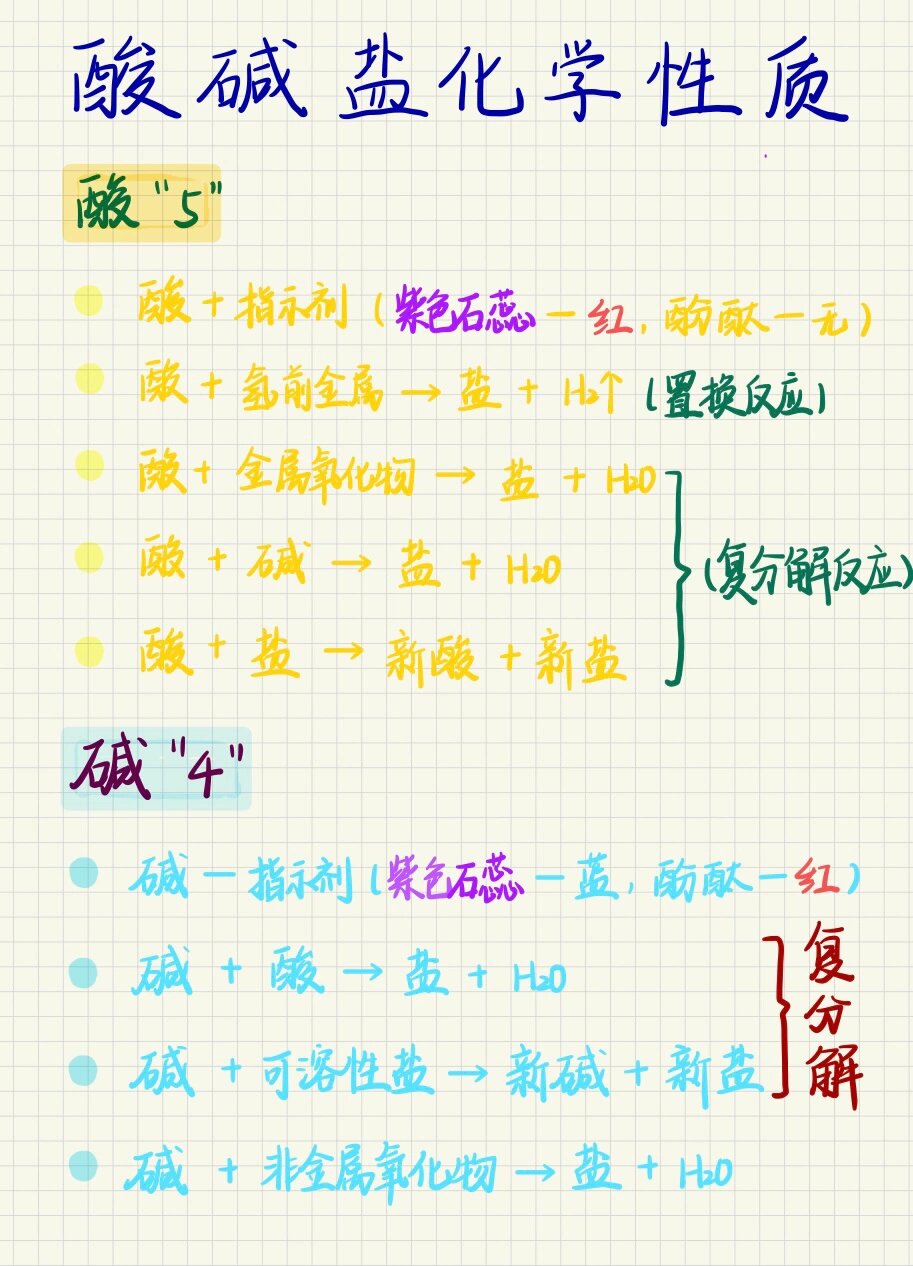 酸碱盐化学性质
酸"5"
酸+指示剂(紫色石蕊—红,酚酞—无)
酸+氢前金属→盐+H₂↑(置换反应)
酸+金属氧化物→盐+H₂O
酸+碱→盐+H₂O
(复分解反应)
酸+盐→新酸+新盐
碱"4"
碱—指示剂(紫色石蕊—蓝,酚酞—红)
碱+酸→盐+H₂O
碱+可溶性盐→新碱+新盐
复分解
碱+非金属氧化物→盐+H₂O